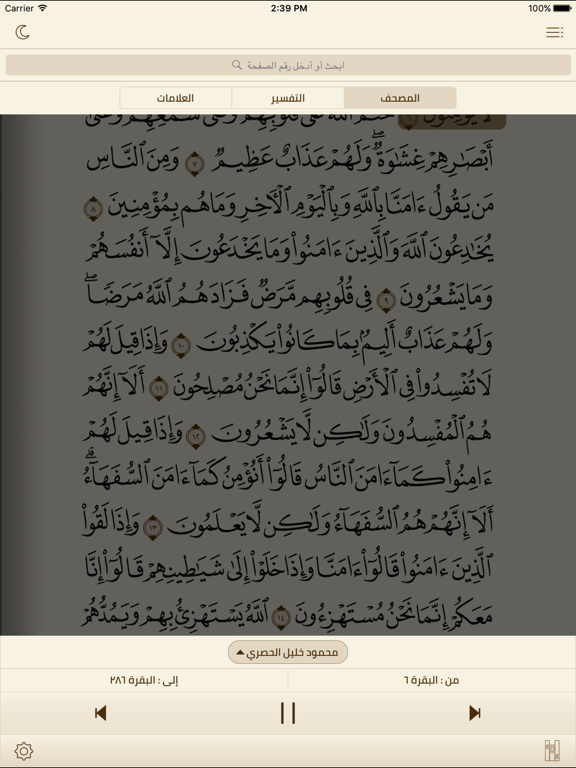 Carrier
2:39 PM
100%
ابحث أو أدخل رقم الصفحة
المصحف
التفسير
العلامات
لَا يُؤْمِنُونَ ٦ خَتَمَ ٱللَّهُ عَلَىٰ قُلُوبِهِمْ وَعَلَىٰ سَمْعِهِمْ وَعَلَىٰٓ
أَبْصَٰرِهِمْ غِشَٰوَةٌ ۖ وَلَهُمْ عَذَابٌ عَظِيمٌ ٧ وَمِنَ ٱلنَّاسِ
مَن يَقُولُ ءَامَنَّا بِٱللَّهِ وَبِٱلْيَوْمِ ٱلْءَاخِرِ وَمَا هُم بِمُؤْمِنِينَ ٨
يُخَٰدِعُونَ ٱللَّهَ وَٱلَّذِينَ ءَامَنُوا۟ وَمَا يَخْدَعُونَ إِلَّآ أَنفُسَهُمْ
وَمَا يَشْعُرُونَ ٩ فِى قُلُوبِهِم مَّرَضٌ فَزَادَهُمُ ٱللَّهُ مَرَضًا ۖ
وَلَهُمْ عَذَابٌ أَلِيمٌۢ بِمَا كَانُوا۟ يَكْذِبُونَ ١٠ وَإِذَا قِيلَ لَهُمْ
لَا تُفْسِدُوا۟ فِى ٱلْأَرْضِ قَالُوٓا۟ إِنَّمَا نَحْنُ مُصْلِحُونَ ١١ أَلَآ إِنَّهُمْ
هُمُ ٱلْمُفْسِدُونَ وَلَٰكِن لَّا يَشْعُرُونَ ١٢ وَإِذَا قِيلَ لَهُمْ
ءَامِنُوا۟ كَمَآ ءَامَنَ ٱلنَّاسُ قَالُوٓا۟ أَنُؤْمِنُ كَمَآ ءَامَنَ ٱلسُّفَهَآءُ ۗ
أَلَآ إِنَّهُمْ هُمُ ٱلسُّفَهَآءُ وَلَٰكِن لَّا يَعْلَمُونَ ١٣ وَإِذَا لَقُوا۟
ٱلَّذِينَ ءَامَنُوا۟ قَالُوٓا۟ ءَامَنَّا وَإِذَا خَلَوْا۟ إِلَىٰ شَيَٰطِينِهِمْ قَالُوٓا۟ إِنَّا
مَعَكُمْ إِنَّمَا نَحْنُ مُسْتَهْزِءُونَ ١٤ ٱللَّهُ يَسْتَهْزِئُ بِهِمْ وَيَمُدُّهُمْ
محمود خليل الحصري
من : البقرة ٦
إلى : البقرة ٢٨٦